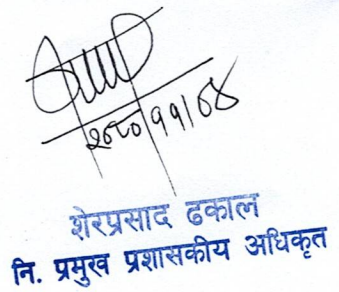 २०८०।११।०४
शेरप्रसाद ढकाल
नि. प्रमुख प्रशासकीय अधिकृत